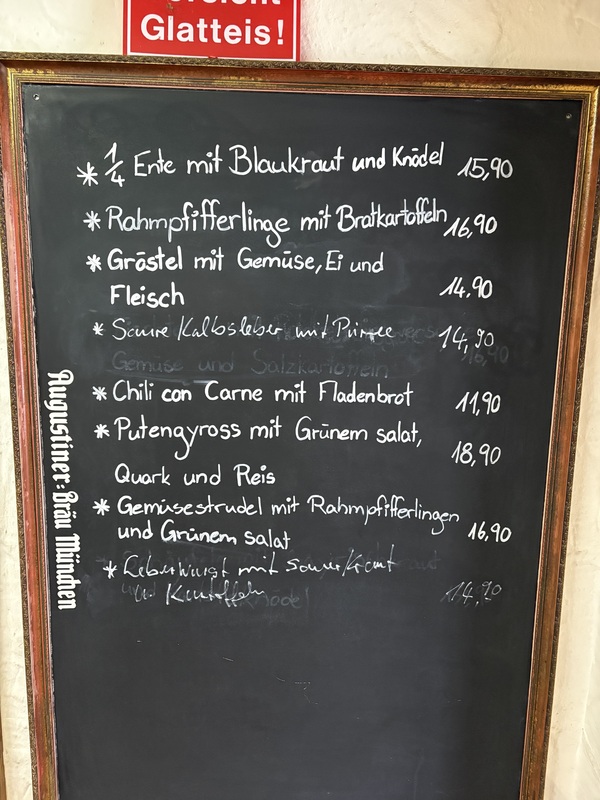 Glatteis!
* 1/4 Ente mit Blaukraut und Knödel 15,90
* Rahmpfifferlinge mit Bratkartoffeln 16,90
* Gröstel mit Gemüse, Ei und
Fleisch 14.90
* Saure Kalbsleber mit Püree 14,90
Gemüse und Salzkartoffeln
* Chili con Carne mit Fladenbrot 11,90
* Putengyross mit Grünem salat, 18,90
Quark und Reis
* Gemüsestrudel mit Rahmpfifferlingen
und Grünem salat 16.90
* Leberwurst mit Sauerkraut
Kartoffeln 14,90
Augustiner-Bräu München